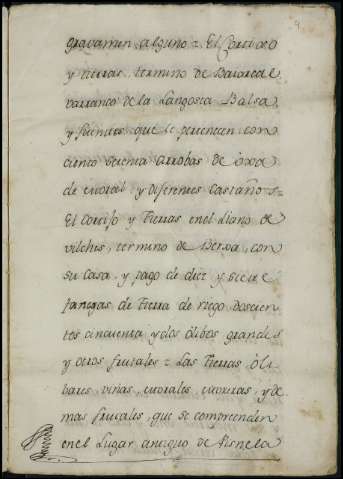 9
gravamen, alguno = El Cortixo
y tierras, termino de Bayarcal e
varranco de la Langosta Balsa
y fuentes que le pertenecen con
ciento ochenta arrobas de oxa
de moral y diferentes Castaños =
El Cortijo y Tierras en el Llano de
vilches, termino de Berxa, con
su Casa, y pago de diez y siete
fanegas de tierra de riego, doscien
tos cinquenta y dos olibos grandes
y otros frutales = Las Tierras oli
bares, viñas, morales, moreras, y de
mas frutales, que se comprenden
en el Lugar antiguo de